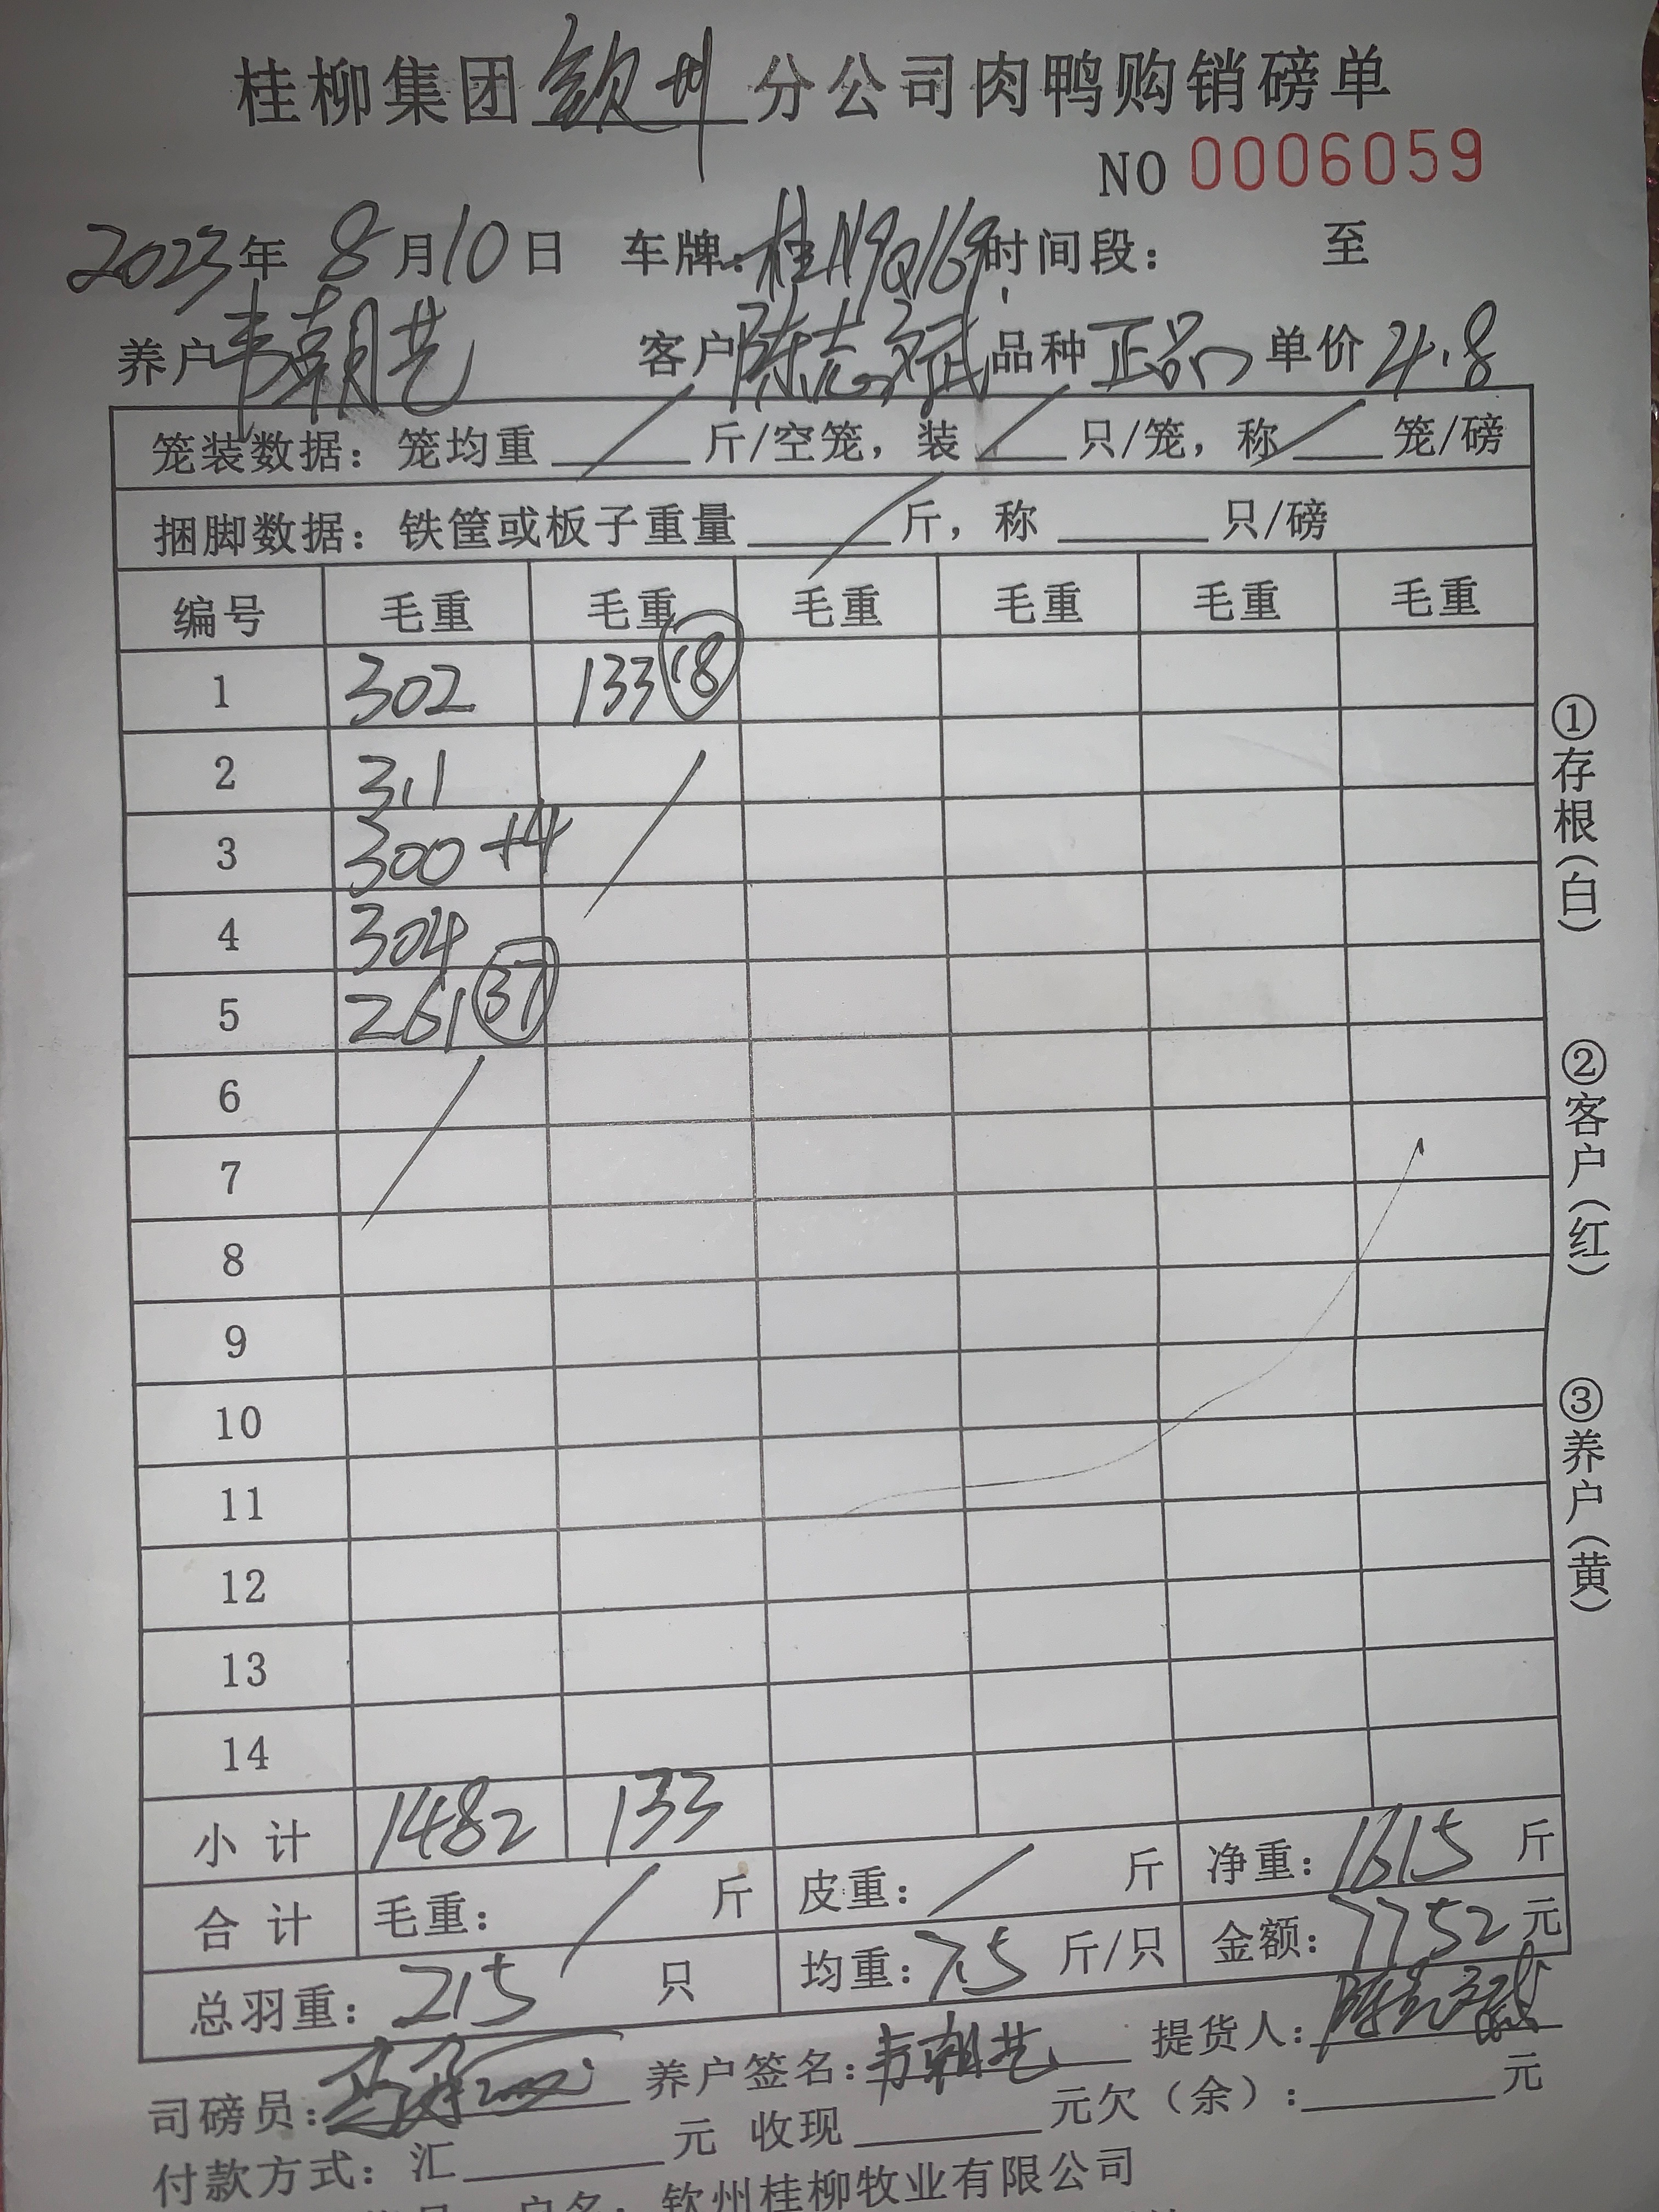 桂柳集团钦州分公司肉鸭购销磅单
NO 0006059
2023年 8月10日 车牌:桂N9Q169 时间段: 至
养户韦朝艺 客户陈志斌 品种正品 单价4.8
笼装数据: 笼均重____斤/空笼, 装____只/笼, 称____笼/磅
捆脚数据: 铁筐或板子重量____斤, 称____只/磅
编号 毛重 毛重 毛重 毛重 毛重 毛重
1 302 133 18
2 311
3 300+4
4 304
5 261 37
6
7
8
9
10
11
12
13
14
小计 1482 133
合计 毛重: / 斤 皮重: / 斤 净重: 1615 斤
总羽重: 215 只 均重: 7.5 斤/只 金额: 7752元
司磅员: 养户签名:韦朝艺 提货人:陈志斌
付款方式: 汇____元 收现____元欠(余):____元
户名: 钦州桂柳牧业有限公司
①存根(白)
②客户(红)
③养户(黄)